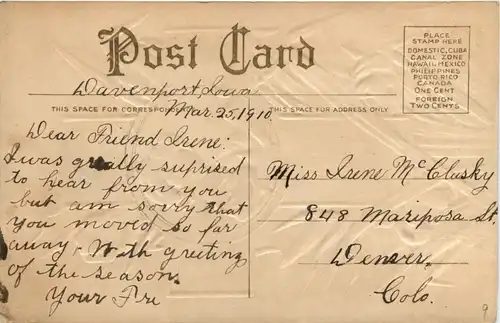 Post Card
PLACE
STAMP HERE
DOMESTIC, CUBA
CANAL ZONE
HAWAII, MEXICO
PHILIPPINES
PORTO RICO
CANADA
ONE CENT
FOREIGN
TWO CENTS
Davenport, Iowa
THIS SPACE FOR CORRESPONDENCE
THIS SPACE FOR ADDRESS ONLY
Mar. 25, 1910.
Dear Friend Irene:
I was greatly suprised
to hear from you
but am sorry that
you moved so far
away. With greeting
of the season.
Your Fri
Miss Irene McClusky
848 Mariposa St.
Denver,
Colo.
9